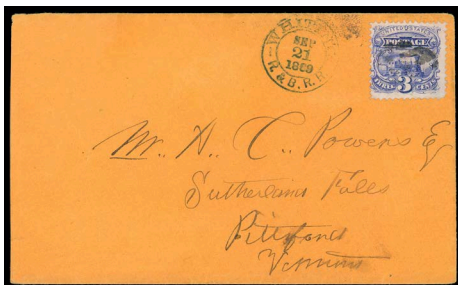 WHITE
SEP
21
1869
R. & B. R. R.
UNITED STATES
POSTAGE
3
THREE CENTS
Mr. A. C. Powers Esq
Sutherland Falls
Pittsford
Vermont